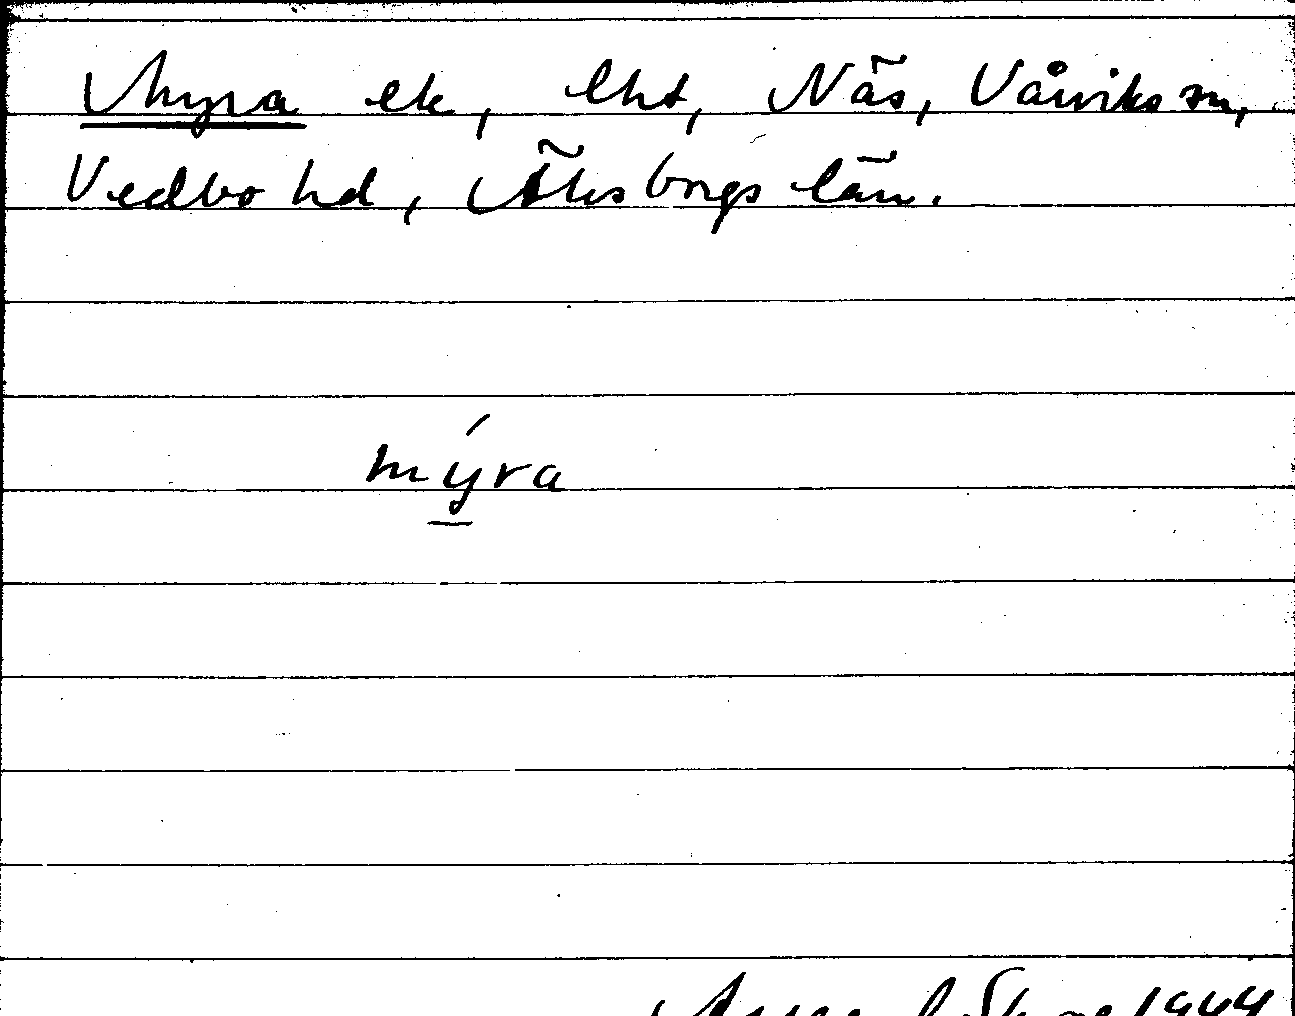 Myra ek, lht, Näs, Vårviks sn,
Vedbo hd, Älvsborgs län.
mýra
1944